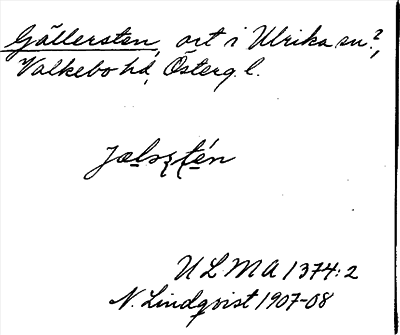 Gällersten, ort i Ulrika sn?,
Valkebo hd, Österg. l.
jælsştén
ULMA 1374:2
N. Lindqvist 1907-08